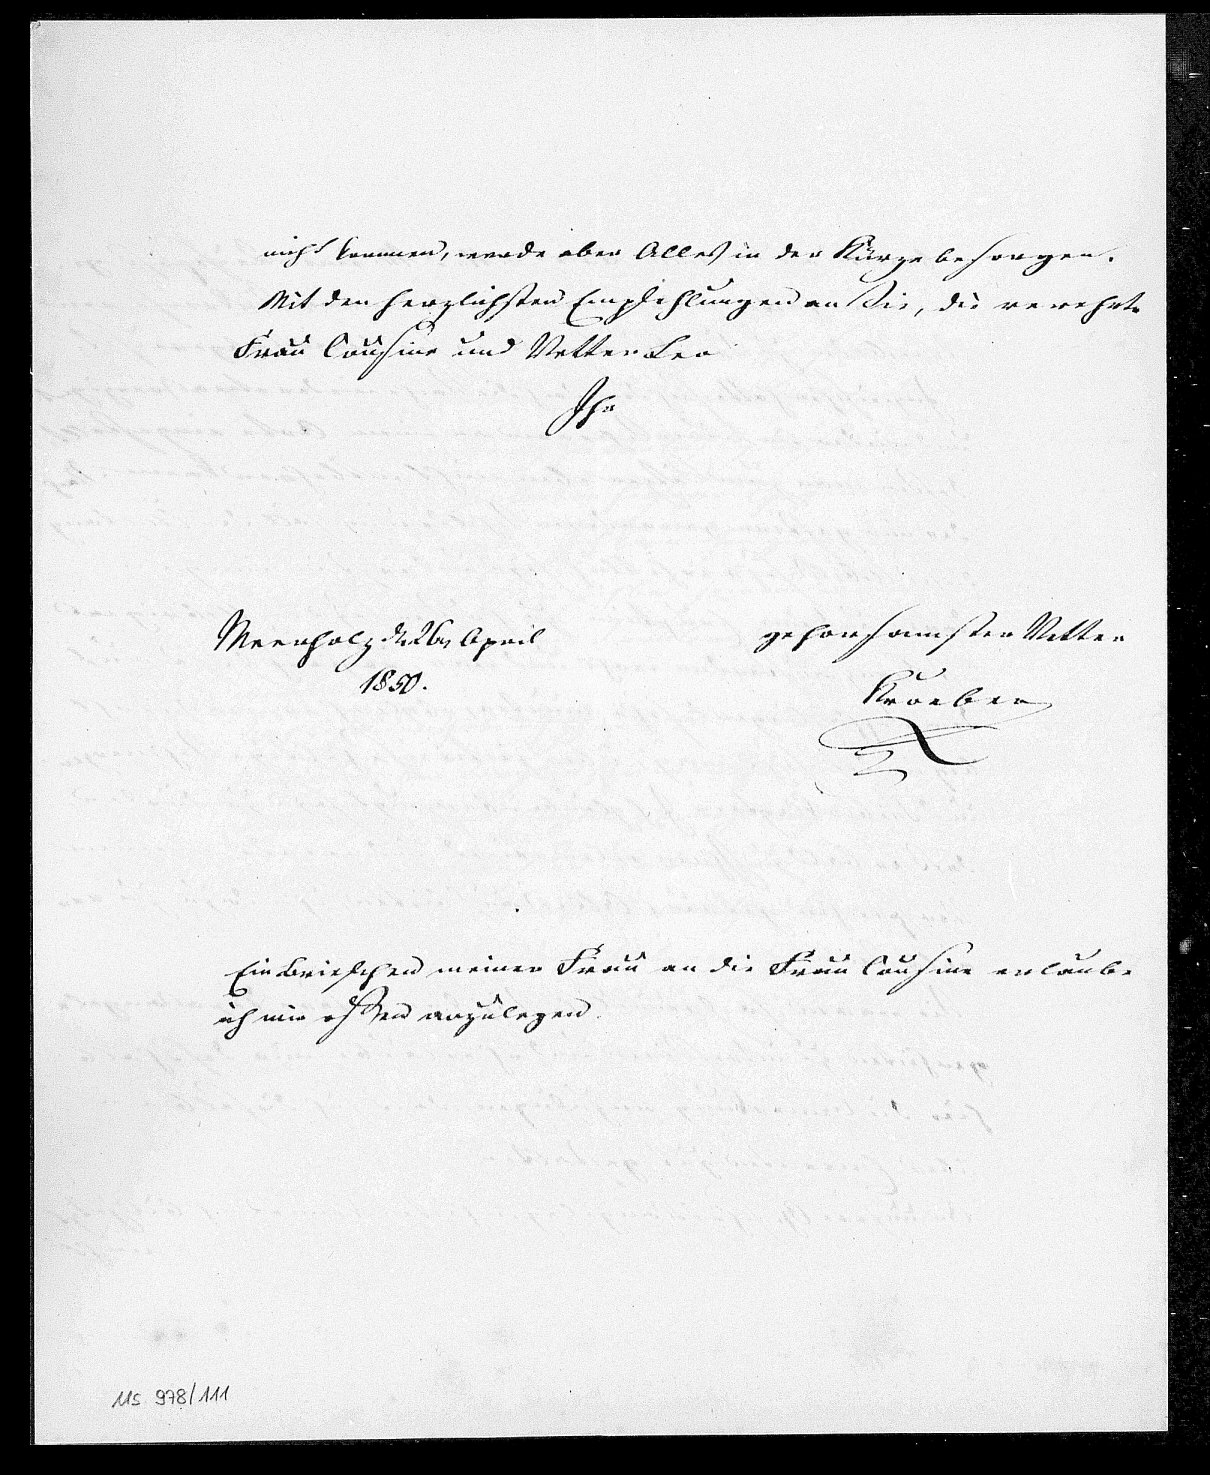 nicht kommen, werde aber Alles in der Kürze besorgen.
Mit den herzlichsten Empfehlungen an Sie, die verehrte
Frau Cousine und Vetter Leo
Ihr
Meerholz d. 26 April
1850.
gehorsamster Vetter
Kroeber
Ein Briefchen meiner Frau an die Frau Cousine erlaube
ich mir offen anzulegen.
Ms 978/111